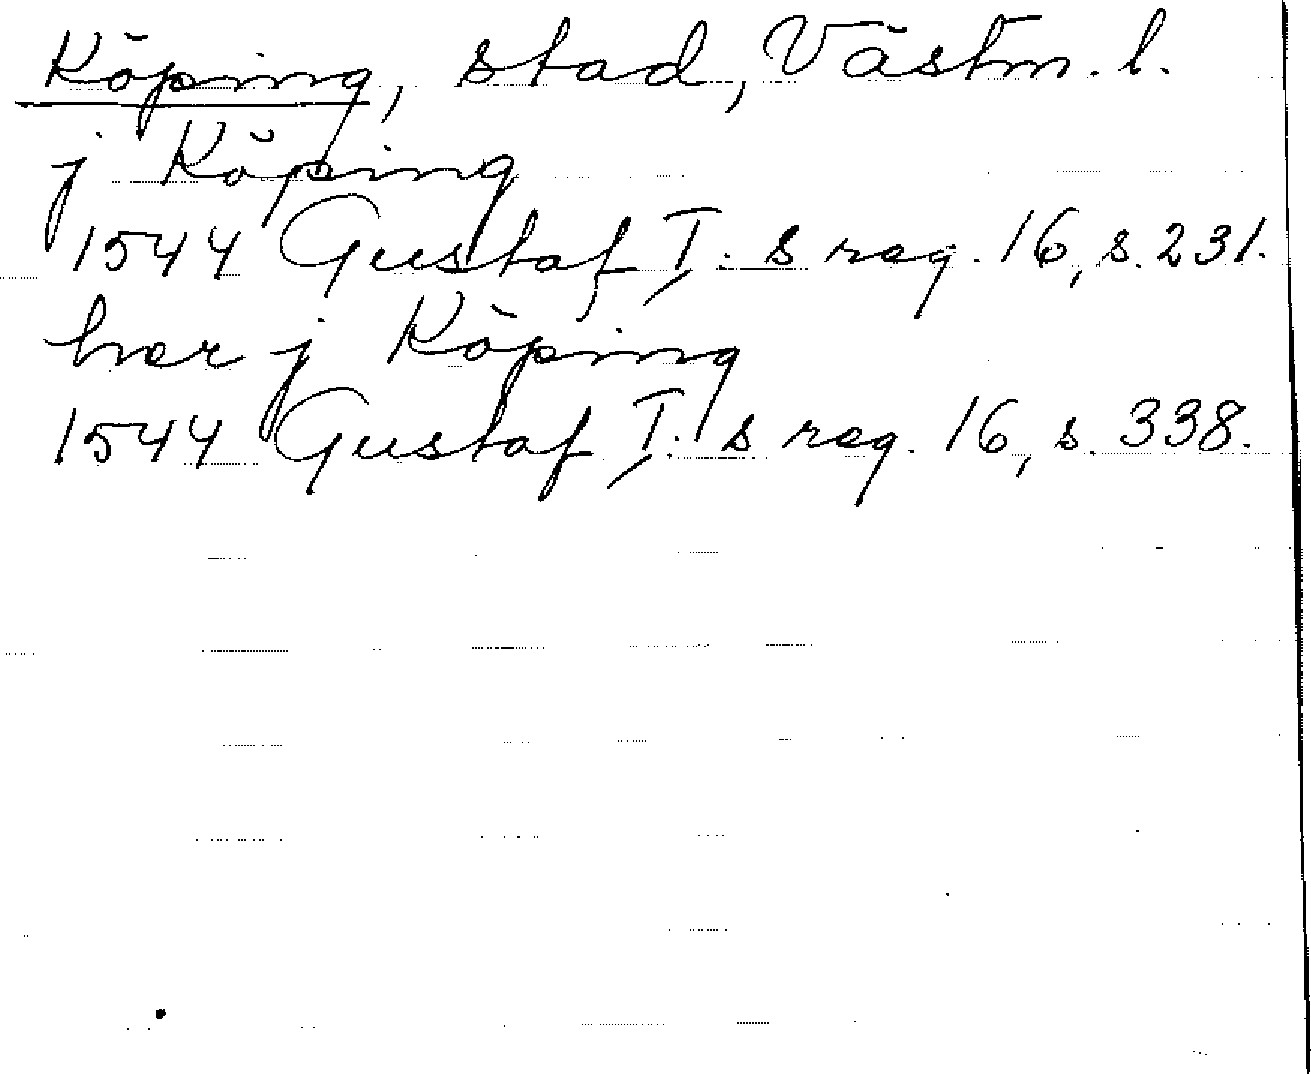 Köping, stad, Västm. l.
j Köping
1544 Gustaf I:s reg. 16, s. 231.
her j Köping
1544 Gustaf I:s reg. 16, s. 338.